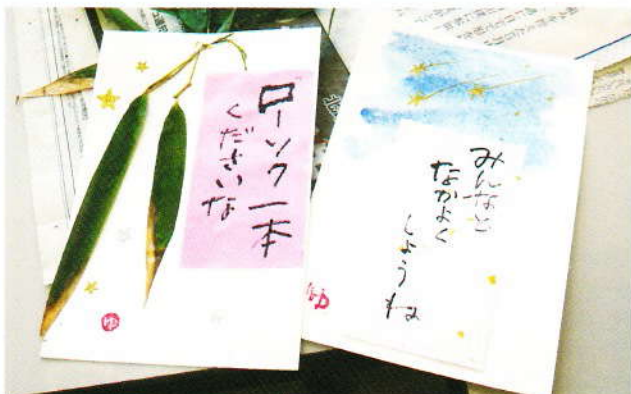 ローソク一本
くださいな
ゆ
みんなと
なかよく
しようね